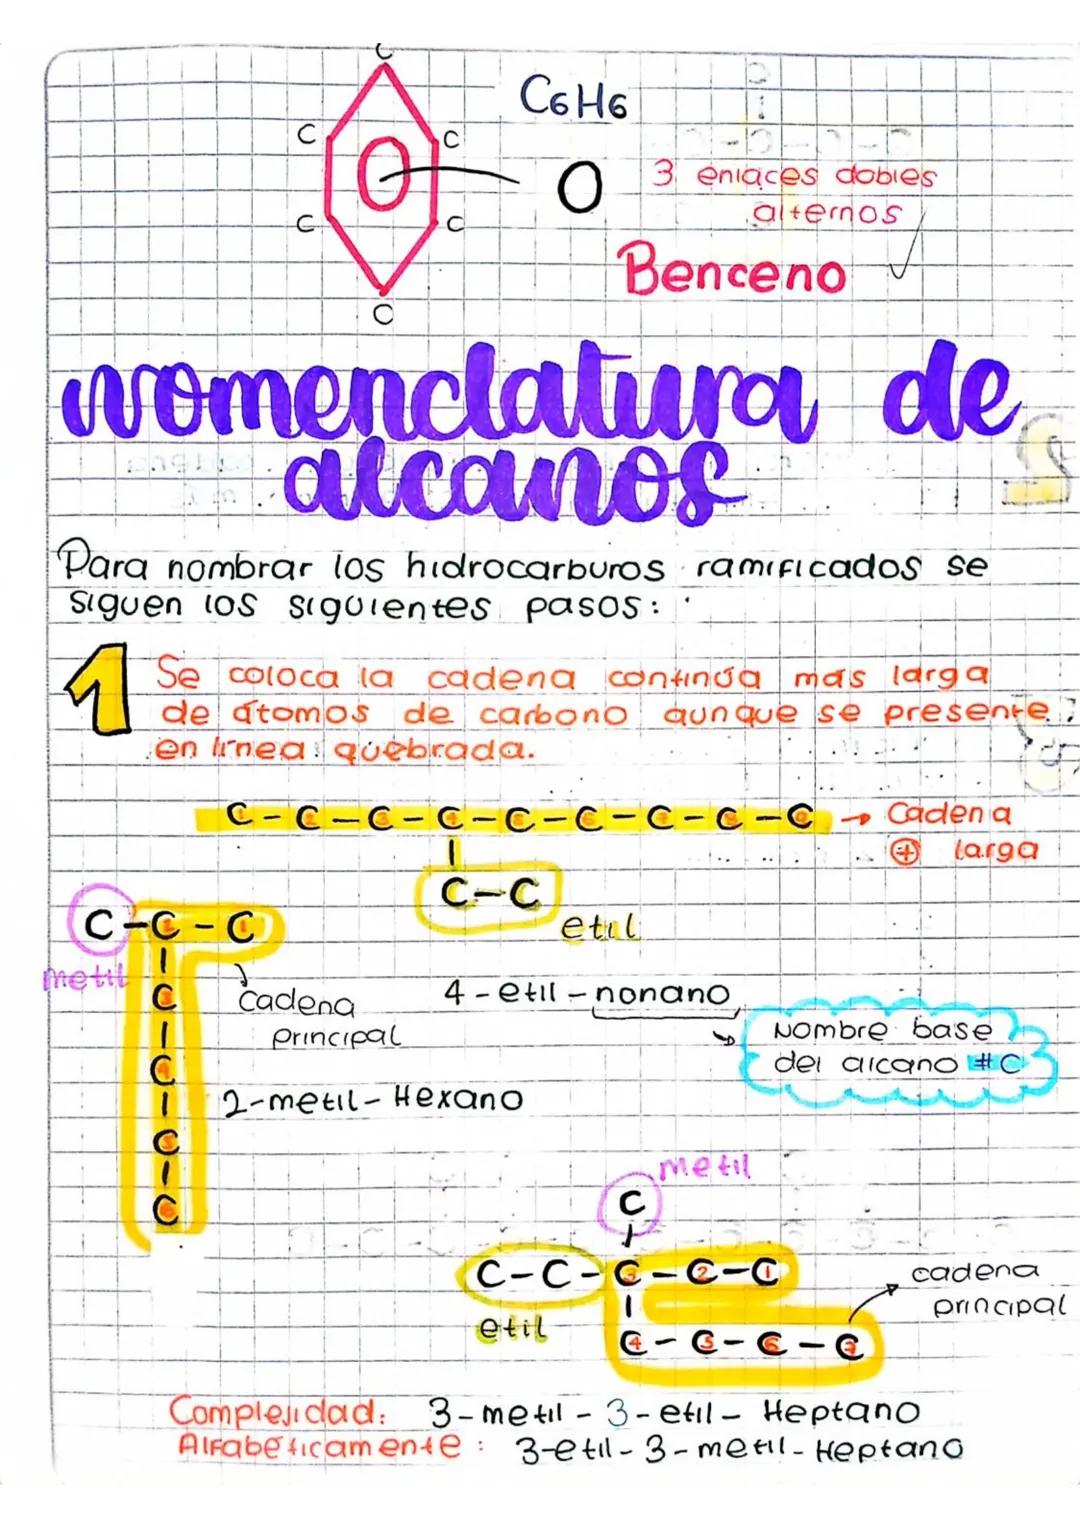 C
C6H6
C C
O O
3 enlaces dobles
alternos
C C
Benceno
C
nomenclatura de
alcanos
Para nombrar los hidrocarburos ramificados se
siguen los siguientes pasos:
1 Se coloca la cadena continúa más larga
de átomos de carbono aunque se presente
en línea quebrada.
C-C-C-C-C-C-C-C-C → Cadena
+ larga
C-C
etil
C-C-C
metil
C
C
C
C
Cadena
principal
4-etil-nonano
Nombre base
del alcano #C
2-metil-Hexano
metil
C
C-C-C-C-C
3 2 1
etil
C-C-C-C
4 5 6 7
cadena
principal
Complejidad: 3-metil-3-etil-Heptano
Alfabéticamente: 3-etil-3-metil-Heptano